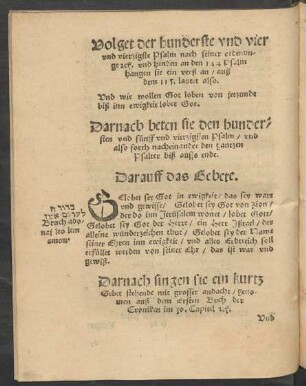 Volget der hunderste vnd vier
vnd viertzigste Psalm nach seiner ordenun-
ge rc. vnd hinden an den 144 Psalm
hangen sie ein verß an / auß
dem 115. lautet also.
Vnd wir wollen Got loben von jetzunde
biß inn ewigkeit lobet Got.
Darnach beten sie den hunder-
sten vnd fünff vnd viertzigsten Psalm / vnd
also forth nacheinander den gantzen
Psalter biß auffs ende.
Darauff das Gebete.
Gelobet sey Got in ewigkeit / das sey war
vnd gewisse / Gelobet sey Got von Zion /
der do inn Jerusalem wonet / lobet Got /
Gelobet sey Got der Herre / ein Herr Israel / der
alleine wünderzeichen thut / Gelobet sey der Name
seiner Ehren inn ewigkeit / vnd alles Erdreich soll
erfüllet werden von seiner Ehr / das ist war vnd
gewiß.
ברוך יי
לעולם אמן
Boruch ado-
nai leo lom
amen
Darnach singen sie ein kurtz
Gebet stehende mit grosser andacht / geno-
men auß dem ersten Buch der
Cronikas im 30. Capitel rc.
Vnd